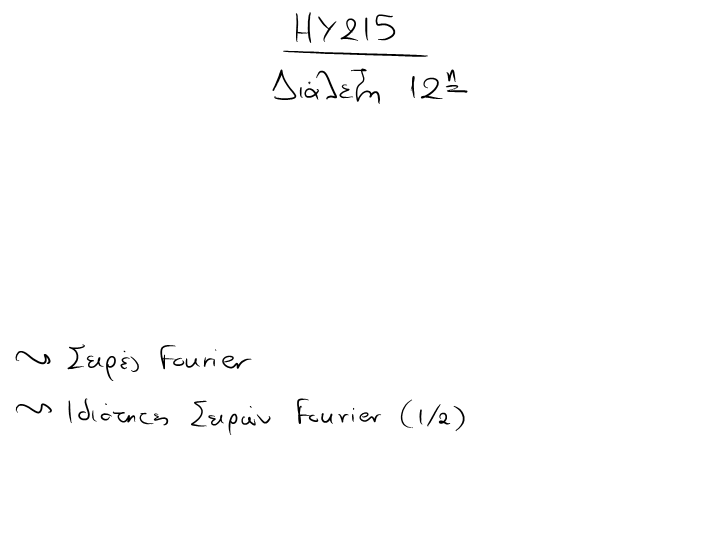 HY215
Διάλεξη 12η
~ Σειρές Fourier
~ Ιδιότητες Σειρών Fourier (1/2)